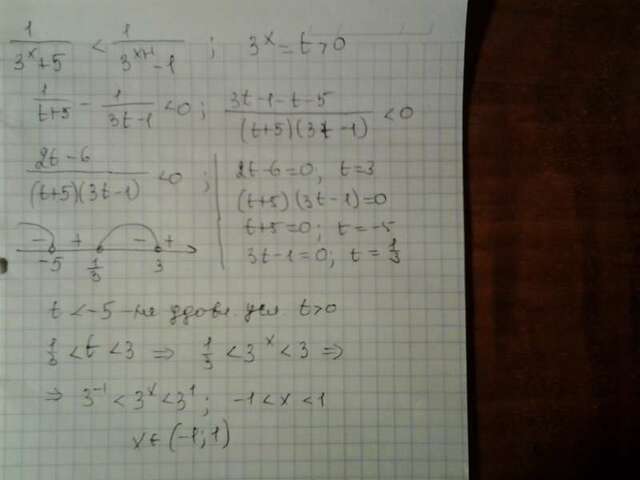 1/(3^x+5) < 1/(3^(x+1)-1) ; 3^x = t > 0
1/(t+5) - 1/(3t-1) < 0 ; (3t-1-t-5)/((t+5)(3t-1)) < 0
(2t-6)/((t+5)(3t-1)) < 0 ;
2t-6=0; t=3
(t+5)(3t-1)=0
t+5=0; t=-5
3t-1=0; t=1/3
- + - +
-5 1/3 3
t < -5 - не удовл усл t>0
1/3 < t < 3 ⇒ 1/3 < 3^x < 3 ⇒
⇒ 3^-1 < 3^x < 3^1 ; -1 < x < 1
x ∈ (-1; 1)